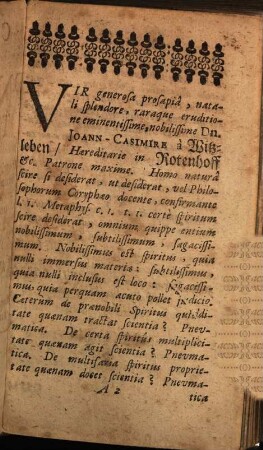 VIR generosa prosapiâ, nata-
li splendore, raraque eruditio-
ne eminentissime, nobilissime Dn.
IOANN-CASIMIRE à Witz-
leben / Hereditarie in Rotenhoff
&c. Patrone maxime. Homo naturâ
scire si desiderat, ut desiderat, vel Philo-
sophorum Coryphæo docente, confirmante
l. 1. Metaphys. c. 1. t. 1. certè spiritum
scire desiderat, omnium quippe entium
nobilissimum, subtilissimum, sagacissi-
mum. Nobilissimus est spiritus, quia
nulli immersus materiæ: subtilissimus,
quia nulli inclusus est loco: sagacissi-
mus, quia perquam acuto pollet judicio.
Cæterum de prænobili Spiritus quiddi-
tate quænam tractat scientia? Pnev-
matica. De certa spiritus multiplici-
tate quænam agit scientia? Pnevma-
tica. De multifaria spiritus proprie-
tate quænam docet scientia? Pnevma-
A 2 tica